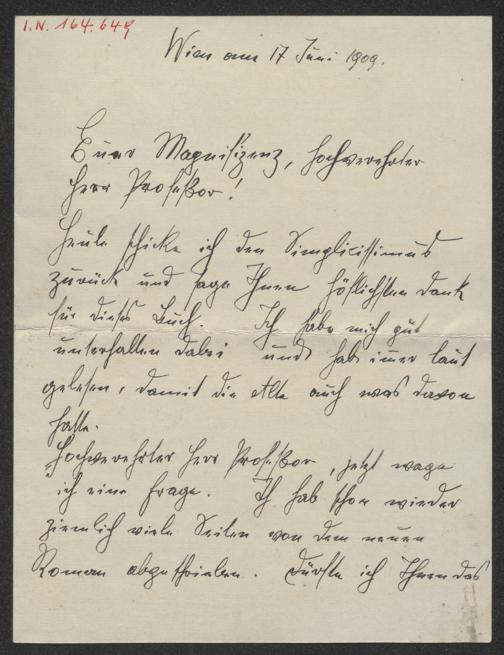 I.N. 164.649
Wien am 17 Juni 1909.
Euer Magnifizenz, hochverehrter
Herr Professor!
Heute schicke ich den Simplicissimus
zurück und sage Ihnen höflichsten Dank
für dieses Buch. Ich habe mich gut
unterhalten dabei und hab immer laut
gelesen, damit die Alte auch was davon
hatte.
Hochverehrter Herr Professor, jetzt wage
ich eine Frage. Ich hab schon wieder
ziemlich viele Seiten von dem neuen
Roman abgeschrieben. Dürfte ich Ihnen das